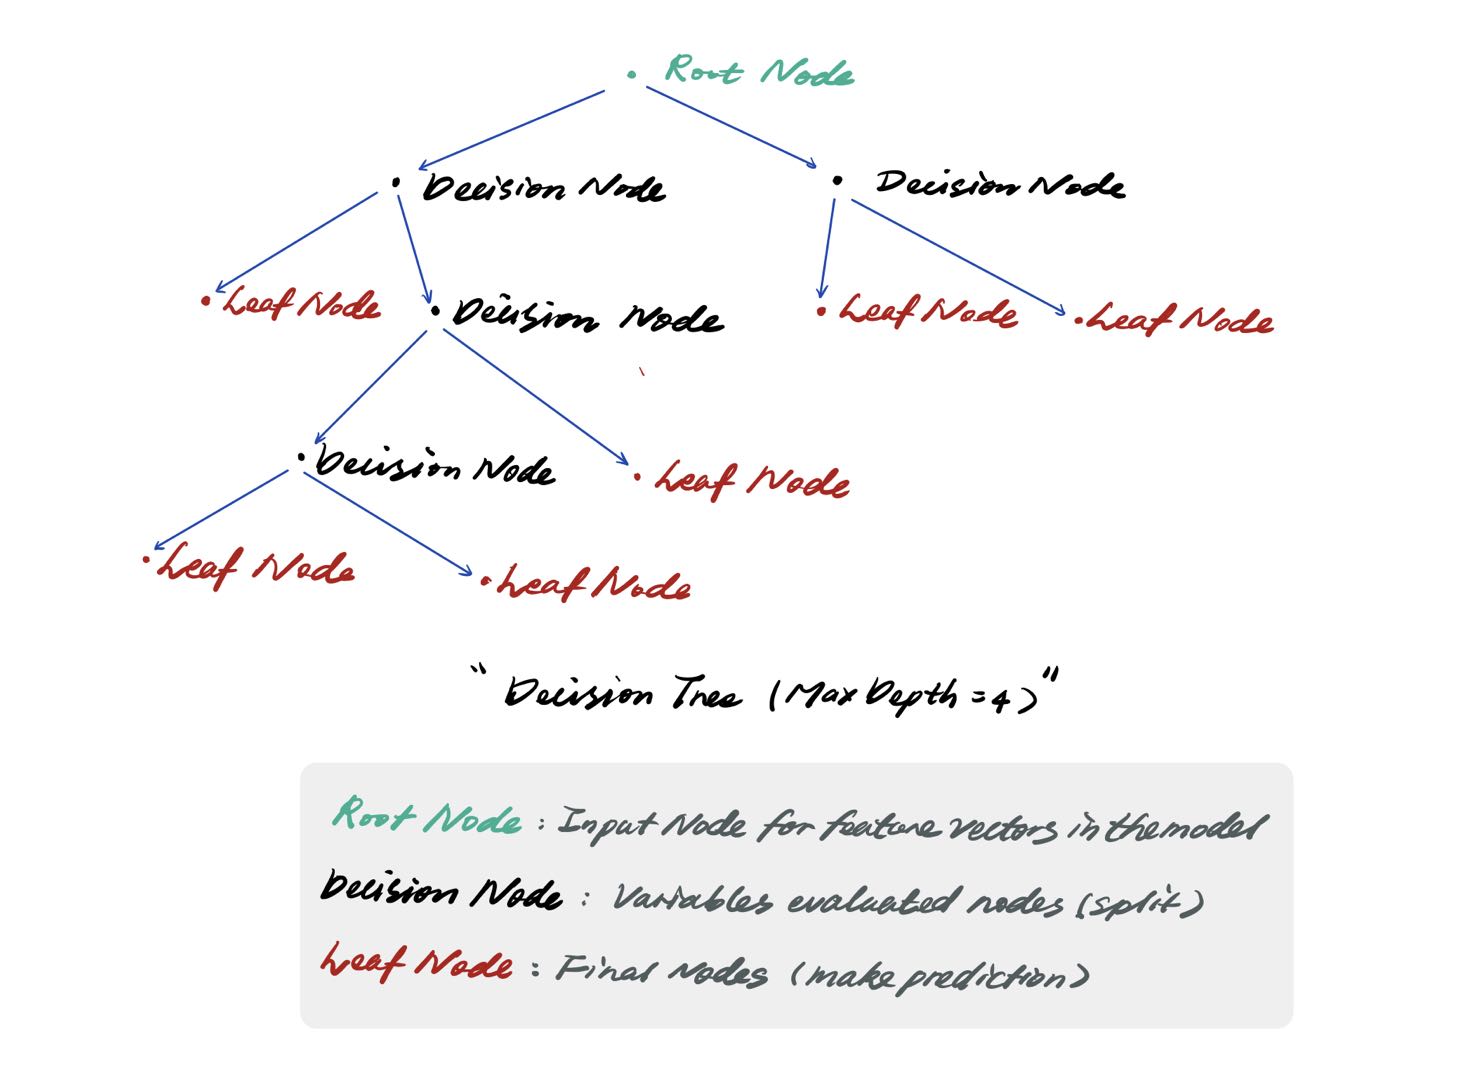 Root Node
Decision Node
Decision Node
Leaf Node
Decision Node
Leaf Node
Leaf Node
Decision Node
Leaf Node
Leaf Node
Leaf Node
"Decision Tree (Max Depth = 4)"
Root Node : Input Node for feature vectors in the model
Decision Node : Variables evaluated nodes (split)
Leaf Node : Final Nodes (make prediction)